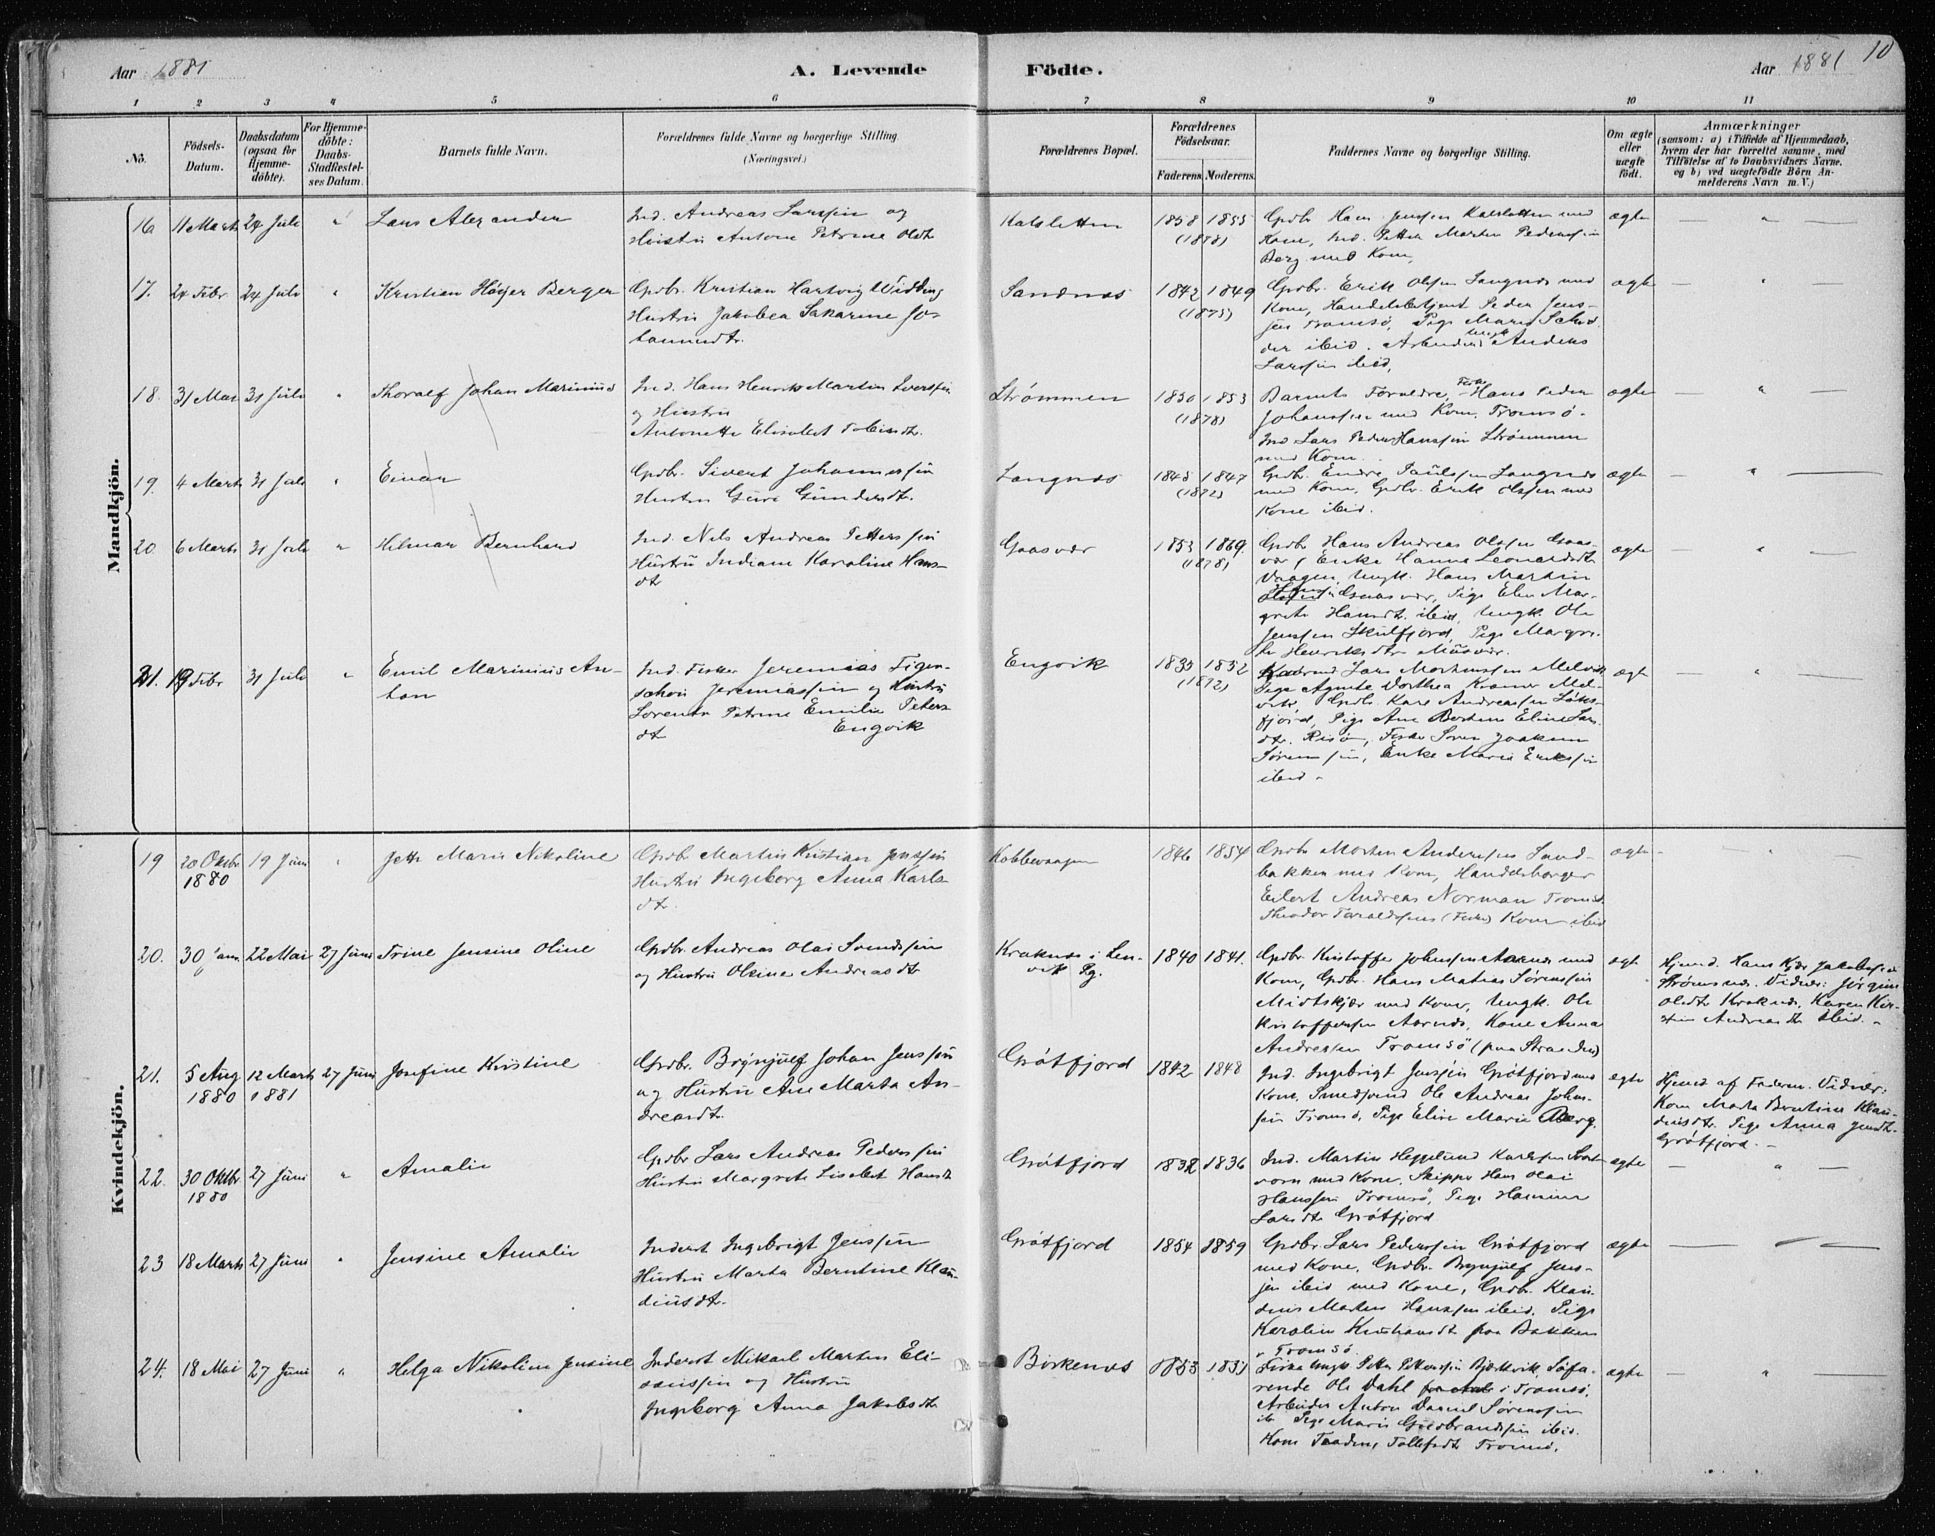 Aar 1881
A. Levende
Födte.
Aar 1881
10
1 2 3 4 5 6 7 8 9 10 11
No.
Födsels-
Datum.
Daabsdatum
(ogsaa for
Hjemme-
döbte).
For Hjemme-
döbte:
Daabs-
Stadfæstel-
ses Datum.
Barnets fulde Navn.
Forældrenes fulde Navne og borgerlige Stilling.
(Næringsvei.)
Forældrenes Bopæl.
Forældrenes
Födselsaar.
Faderens. Moderens.
Faddernes Navne og borgerlige Stilling.
Om ægte
eller
uægte
födt.
Anmærkninger
(saasom: a) i Tilfælde af Hjemmedaab,
hvem der har forrettet samme, med
Tilföielse af to Daabsvidners Navne.
og b) ved uægtefödte Börn An-
melderens Navn m. V.)
Mandkjön.
16 11 Marts 24 Juli " Lars Alexander
Ind. Andreas Larssen og
Hustru Antone Petrine Oldt
Katsletten
1858 1855
(1878)
Gdbr Hans Jenssen Katsletten med
Kone, Ind. Petter Martin Pederssen
Berg med Kone,
ægte — " —
17. 24 Febr 24 Juli " Kristian Höyer Berger
Gdbr. Kristian Hartvig Widding
Hustru Jakobea Sakarine Jo-
hannesdtr.
Sandnæs
1842 1849
(1875)
Gdbr. Erik Olsen Langnæs med
Kone, Handelsbetjent Peder Jens-
sen Tromsö, Pige Maren
ibid. Arbeider Anders
Larssen ibid,
ægte — " —
18. 31 Mai 31 Juli " Thoralf Johan Marinius
Ind. Hans Henrik Martin Iverssen
og Hustru
Antonette Elisabet Tobiasdtr.
Strømmen
1850 1853
(1878)
Barnets Forældre, Hans Peder
Johanssen med Kone, Tromsö.
Ind Lars Peder Hanssen Strømmen
med Kone.
ægte — " —
19. 4 Marts 31 Juli " Einar
Gdbr. Sivert Johannessen
Hustru Guro Gundersdtr.
Langnæs
1845 1847
(1872)
Gdbr. Endre Paulssen Langnæs
med Kone, Gdbr. Erik Olssen med
Kone ibid.
ægte — " —
20. 6 Marts 31 Juli " Hilmar Bernhard
Ind. Nils Andreas Petterssen
Hustru Indiane Karoline Hans-
dt
Gaasvær
1853 1860.
(1878)
Gdbr Hans Andreas Olssen Gaas-
vær, Enke Hanna Leonardsdt
Vaagen, Ungk. Hans Martin
Gaasvær, Pige Elen Mar-
grete Hansdt. ibid, Ungk. Ole
Jenssen Skulfjord, Pige Margre-
te Henriksdtr Musvær.
ægte — " —
21. 19 Febr 31 Juli " Emil Marinius An-
ton
Ind. Fisker Jeremias Figen-
schou Jeremiassen og Hustru
Lorentse Petrine Emilie Peters
dt Engvik
Engvik
1835 1852
(1872)
Lars Mortenssen Melvik
Pige Agnete Dorthea Kramer Mel-
vik, Gdbr. Kare Andreassen Løks-
fjord, Pige Ane Bertine Eline Lars-
dtr. Risö, Fisker Sören Joakim
Sörenssen, Enke Maria Erikssen
ibid.
ægte — " —
Kvindekjön.
19 20 Oktbr 1880 19 Juni " Jette Marie Nikoline
Gdbr Martin Kristian Jenssen
Hustru Ingeborg Anna Karls-
dt.
Kobbevaagen
1846 1854
Gdbr Morten Anderssen Sand-
bakken med Kone, Handelsborger
Eilert Andreas Norman Tromsö
Theodor Taraldssens (Fisker) Kone ibid
ægte — " —
20. 30 Jan 22 Mai 27 Juni Trine Jensine Oline
Gdbr. Andreas Olai Svendssen
og Hustru Oleine Andreasdt
Kraknæs i Len-
vik Pg.
1840 1841.
Gdbr. Kristoffer Johnsen Aarnæs med
Kone, Gdbr. Hans Matias Sørenssen
Midtskjær med Kone, Ungk. Ole
Kristofferssen Aarnæs, Kone Anna
Andresen Tromsö (paa Stranden)
ægte
Hjemd. Hans Kjær Jakobssen
Strømsnæs. Vidner: Jörgine
Olsdt. Kraknæs, Karen Kir-
stine Andreasdt ibid.
21. 5 Aug 1880 12 Marts 1881 27 Juni Josefine Kirstine
Gdbr. Brynjulf Johan Jenssen
og Hustru Ane Marta An-
dreasdt.
Grötfjord
1842 1848
Ind. Ingebrigt Jenssen Grötfjord med
Kone, Smedsvend Ole Andreas Johns-
sen Tromsö, Pige Eline Marie Aberg.
ægte
Hjemd af Faderen. Vidner:
Kone Marta Berntine Klau-
diusdt. Pige Anna Jensdt.
Grötfjord. —
22. 30 Oktbr 1880 27 Juni " Amalie
Gdbr Lars Andreas Pederssen
Hustru Margrete Lisabet Hansdt
Grötfjord
1832 1836
Ind. Martin Heggelund Karlssen Sort-
med Kone, Skipper Hans Olai
Hanssen Tromsö, Pige Hansine
Larsdtr Grötfjord
ægte — " —
23 18 Marts 27 Juni " Jensine Amalie
Inderst Ingebrigt Jenssen
Hustru Marta Berntine Klau-
diusdt.
Grötfjord
1854 1859
Gdbr Lars Pederssen Grötfjord
med Kone, Gdbr. Brynjulf Jens-
sen ibid med Kone, Gdbr. Klau-
dius Hanssen ibid, Pige
Karoline Kristiansdt paa Bakken
i Tromsö.
ægte — " —
24. 18 Mai 27 Juni " Helga Nikoline Jensine
Inderst Mikael Martin Eli-
assen og Hustru
Ingeborg Anna Jakobsdt.
Birkenæs
1853 1851
Fisker Ungk Petter Petterssen Bjerkvik, Søfa-
rende Ole Dahl i Tromsö,
Arbeider Anton Daniel Sörenssen
ib Pige Maren Guldbrandssen ibid.
Kone Tollefsdt Tromsö,
ægte — " —